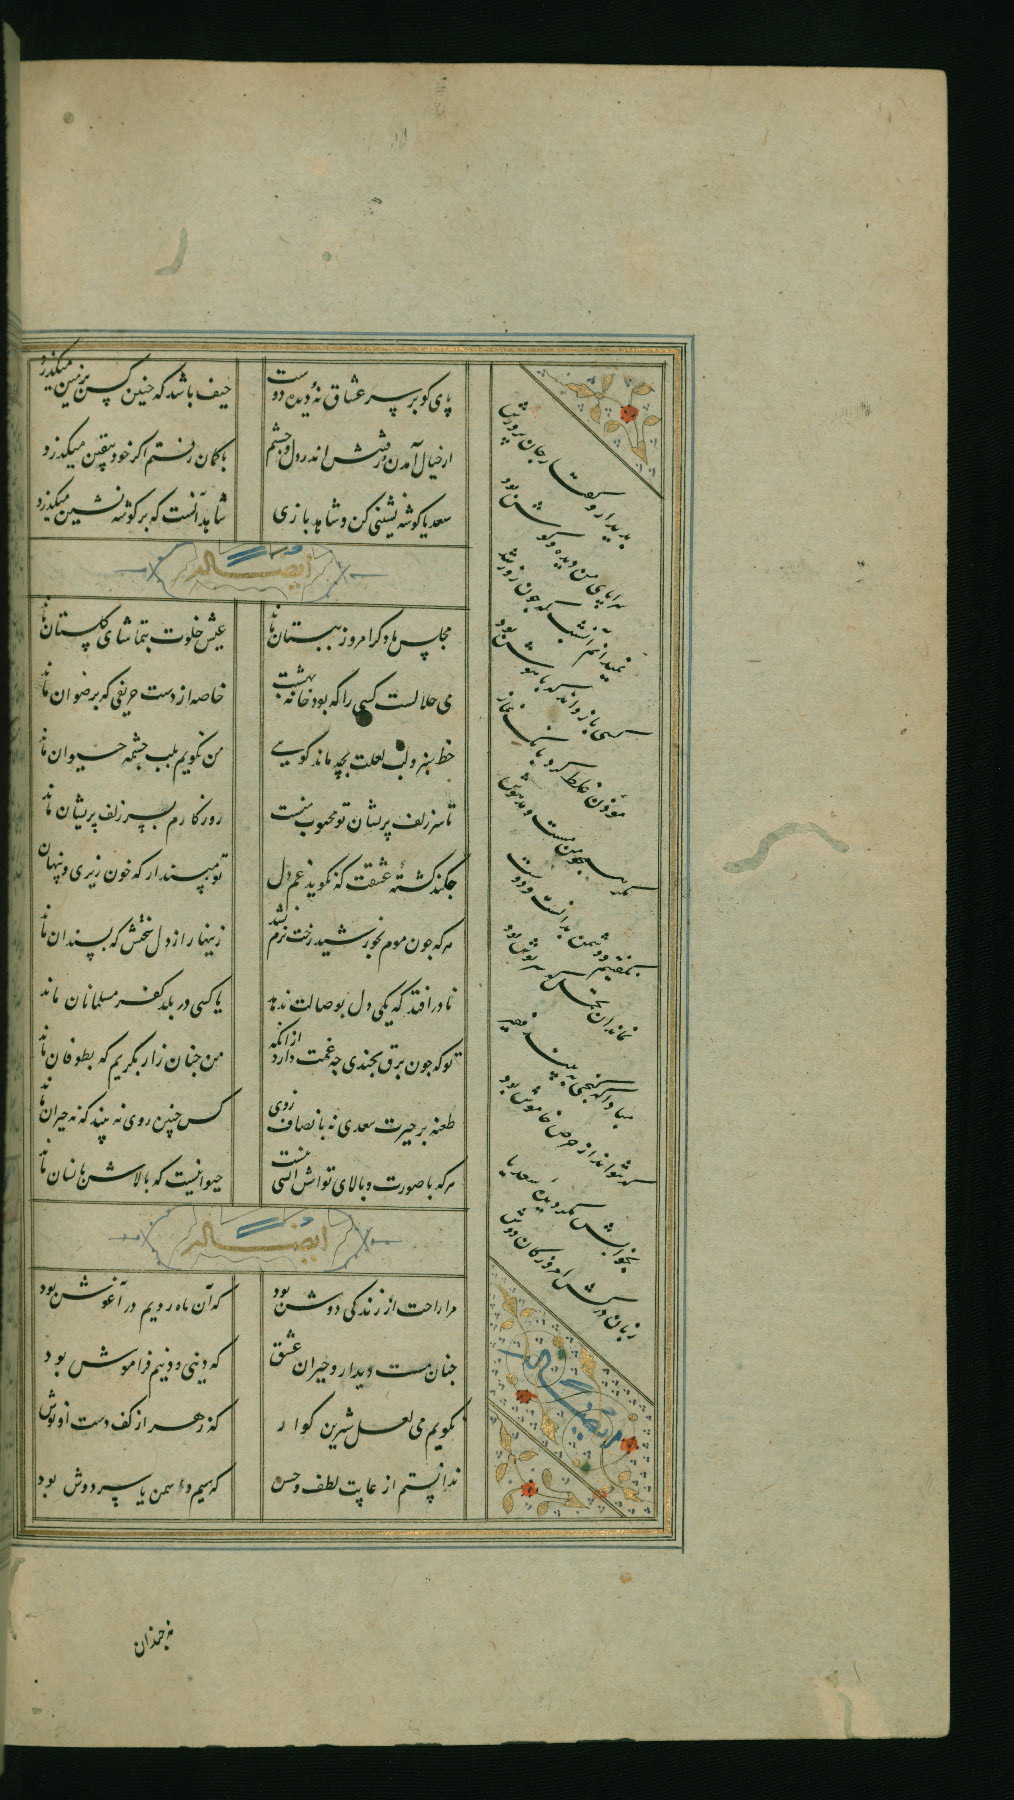 پای کو بر سر عشاق نه و دیده دوست حیف باشد که چنین کس بزمین میگذرد
از خیال آمدن و رفتنش اندر دل و چشم با گمان رفتم اگر خود بیقین میگذرد
سعدیا گوشه نشینی کن و شاهد بازی شاهد آنست که بر گوشه نشین میگذرد
ایضاً له
مجلس ما دگر امروز ببستان ماند عیش خلوت بتماشای گلستان ماند
می حلالست کسی را که بود خانه بهشت خاصه از دست حریفی که برضوان ماند
خط سبز و لب لعلت بچه ماند گویی من نگویم بلب چشمه حیوان ماند
تا سر زلف پریشان تو محبوب منست روزگارم بسر زلف پریشان ماند
چکند کشته عشقت که نگوید غم دل تو مپندار که خون ریزی و پنهان ماند
هر که چون موم بخورشید رخت نرم نشد زینهار از دل سختش که بسندان ماند
نادر افتد که یکی دل بوصالت ندهد یا کسی در بلد کفر مسلمان ماند
تو که چون برق بخندی چه غمت دارد از آنکه من چنان زار بگریم که بطوفان ماند
طعنه بر حیرت سعدی نه بانصاف زدی کس چنین روی نه بیند که نه حیران ماند
هر که با صورت و بالای تواش انسی نیست حیوانیست که بالاش بانسان ماند
ایضاً له
مرا راحت از زندگی دوش بود که آن ماه رویم در آغوش بود
چنان مست دیدار و حیران عشق که دینی و دینم فراموش بود
نگویم می لعل شیرین گوار که زهر از کف دست او نوش بود
ندانستم از غایت لطف و حسن که سیم و سمن یا بر و دوش بود
بدیدار و گفتار جان پرورش
سراپای من دیده و گوش بود
نمیدانم آنشب که چون روز شد
کسی باز داند که باهوش بود
مؤذن غلط کرد بانگ نماز
مگر همچو من مست و مدهوش
بگفتیم و دشمن بدانست و دوست
نماند آن تحمل که سرپوش بود
مبادا که گنجی ببیند فقیر
که نتواند از حرص خاموش بود
بخوابش مگر دیده سعدیا
زبان درکش امروز کان دوش
ایضاً له
نه چندان